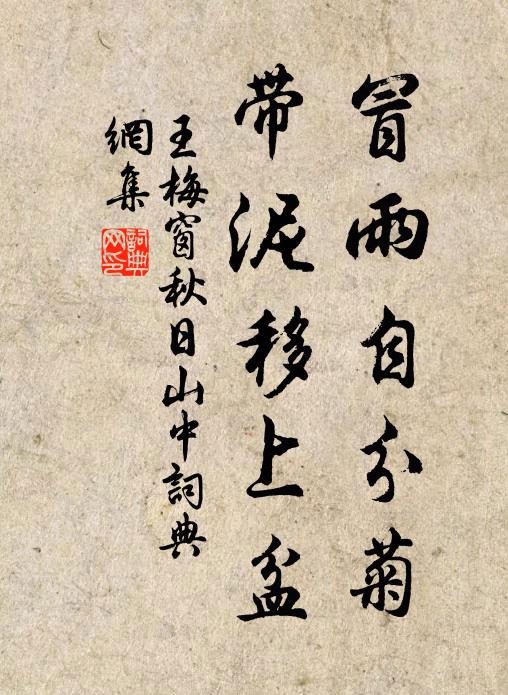 冒雨自分菊
带泥移上盆
王梅窗秋日山中詞典
網集
詞典
网印